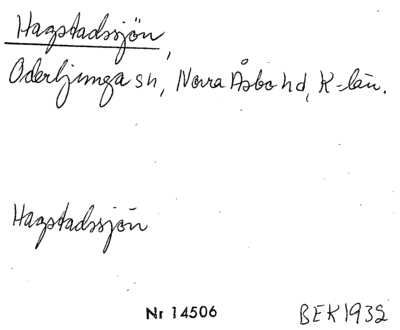 Hagstadssjön,
Oderljunga sn, Norra Åsbo hd, K-län.
Hagstadssjön
Nr 14506
BEK 1932